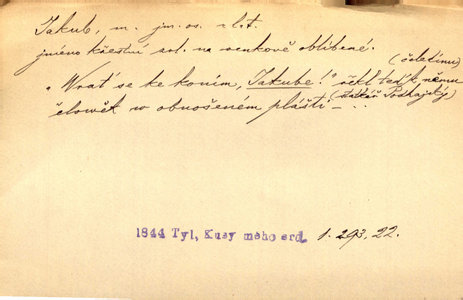 Jakub, m. jm. os.
jméno křestní zvl. na venkově oblíbené.
(čeledínu)
„Wrať se ke koním, Jakube!" řekl teď k němu
(statkář Podhajský)
člowěk w obnošeném plášti – ...
1844 Tyl, Kusy mého srd. 1. 293, 22.